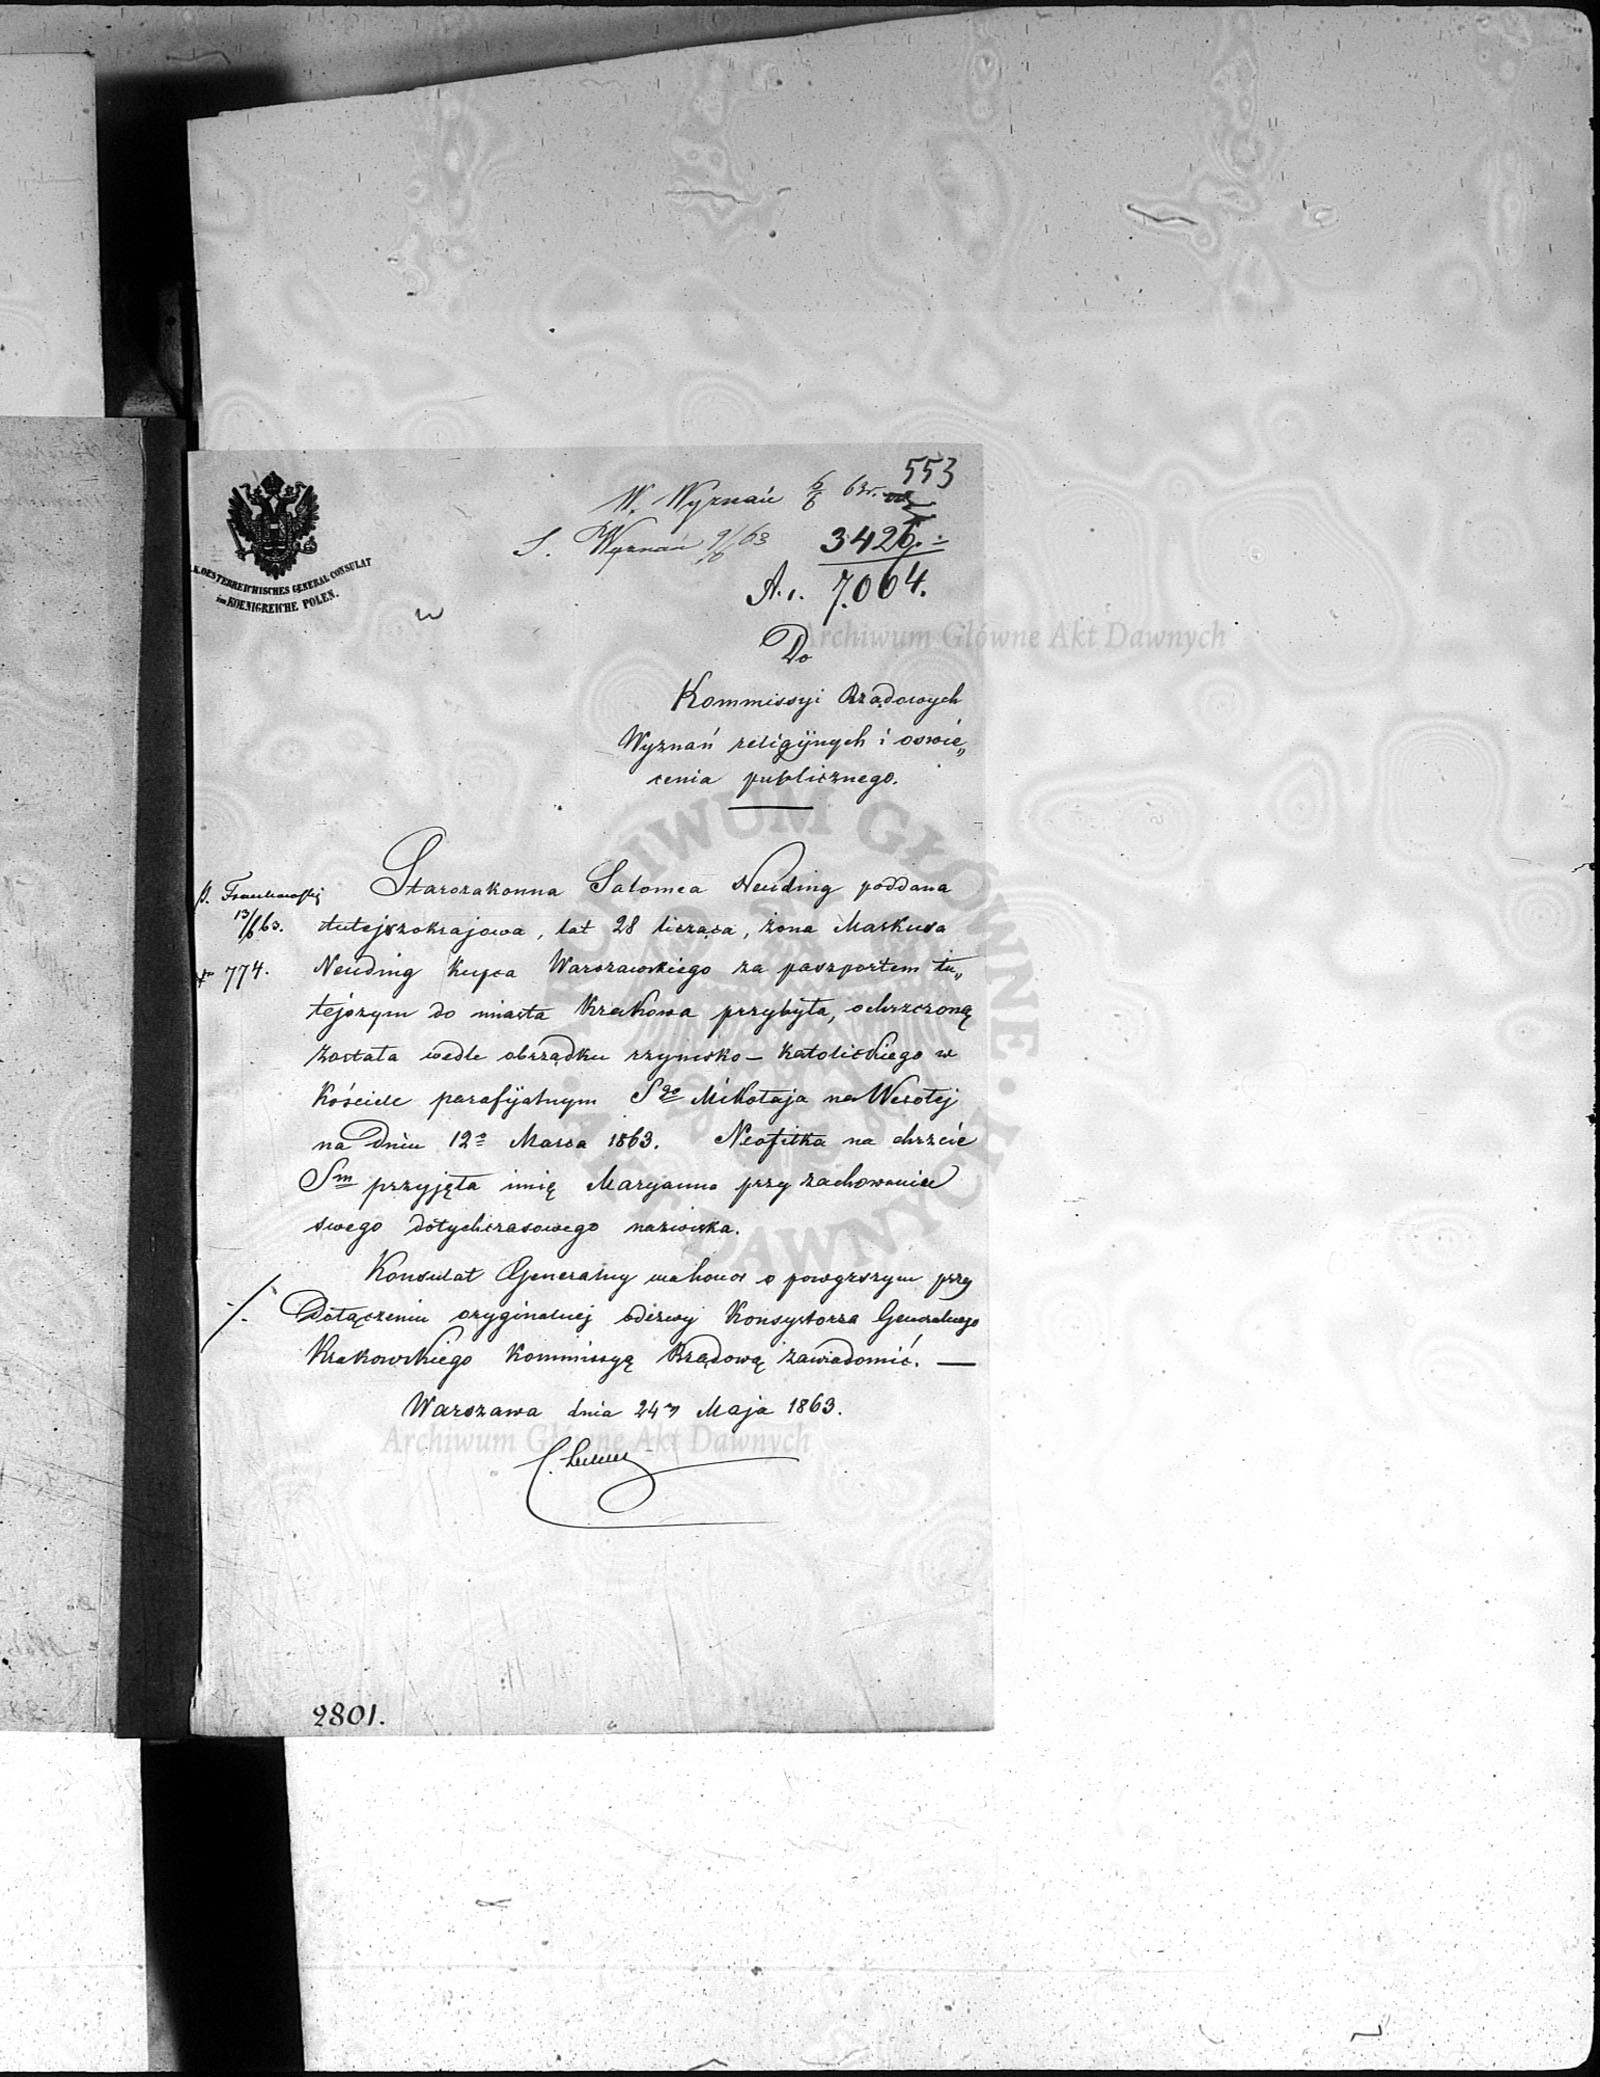 553
W. Wyznań 6/6 63r.
S. Wyznań 9/6 63 3426.
A. 1. 7.064.
K. OESTERREICHISCHES GENERAL CONSULAT
im KOENIGREICHE POLEN.
Do
Kommissyi Rządowych
Wyznań religijnych i oswie„
cenia publicznego.
Starozakonna Salomea Neuding poddana
13/6 63. tutejszokrajowa, lat 28 licząca, żona Markusa
774. Neuding Kupca Warszawskiego za paszportem tu„
tejszym do miasta Krakowa przybyła, ochrzczoną
została wedle obrządku rzymsko-katolickiego w
Kościele parafijalnym Sgo Mikołaja na Wesołej
na dniu 12o Marca 1863. Neofitka na chrzcie
Sm przyjęła imię Maryanna przy zachowaniu
swego dotychczasowego nazwiska.
Konsulat Generalny ma honor o powyższym przy
./. Dołączeniu oryginalnej odezwy Konsystorza Generalnego
Krakowskiego Kommissyą Rządową zawiadomić. —
Warszawa dnia 24go Maja 1863.
2801.
Archiwum Główne Akt Dawnych
ARCHIWUM GŁÓWNE AKT DAWNYCH
Archiwum Główne Akt Dawnych